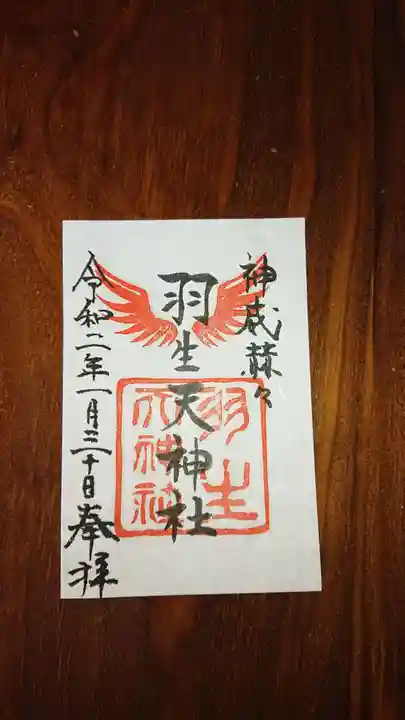 神威赫々
羽生天神社
羽生
天神社
令和二年一月三十日奉拝